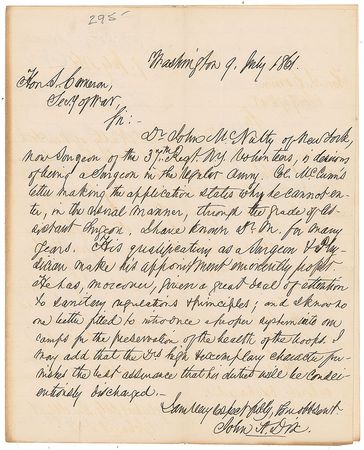 295
Washington 9. July 1861.
Hon S. Cameron,
Secy of War.
Sir:-
Dr John McNulty of New York,
now Surgeon of the 37th Regt NY Volunteers, is desirous
of being a Surgeon in the regular army. Col. McCunn's
letter making the application states why he cannot en-
ter, in the usual manner, through the grade of As-
sistant Surgeon. I have known Dr. M. for many
years. His qualifications as a Surgeon & Phy-
sician make his appointment eminently proper.
He has, moreover, given a great deal of attention
to sanitary regulations & principles; and I know no
one better fitted to introduce a proper system into our
camps for the preservation of the health of the troops. I
may add that the Drs high & exemplary character fur-
nishes the best assurance that his duties will be consci-
entiously discharged.
I am very respectfully, Your obt Sert
John A. Dix